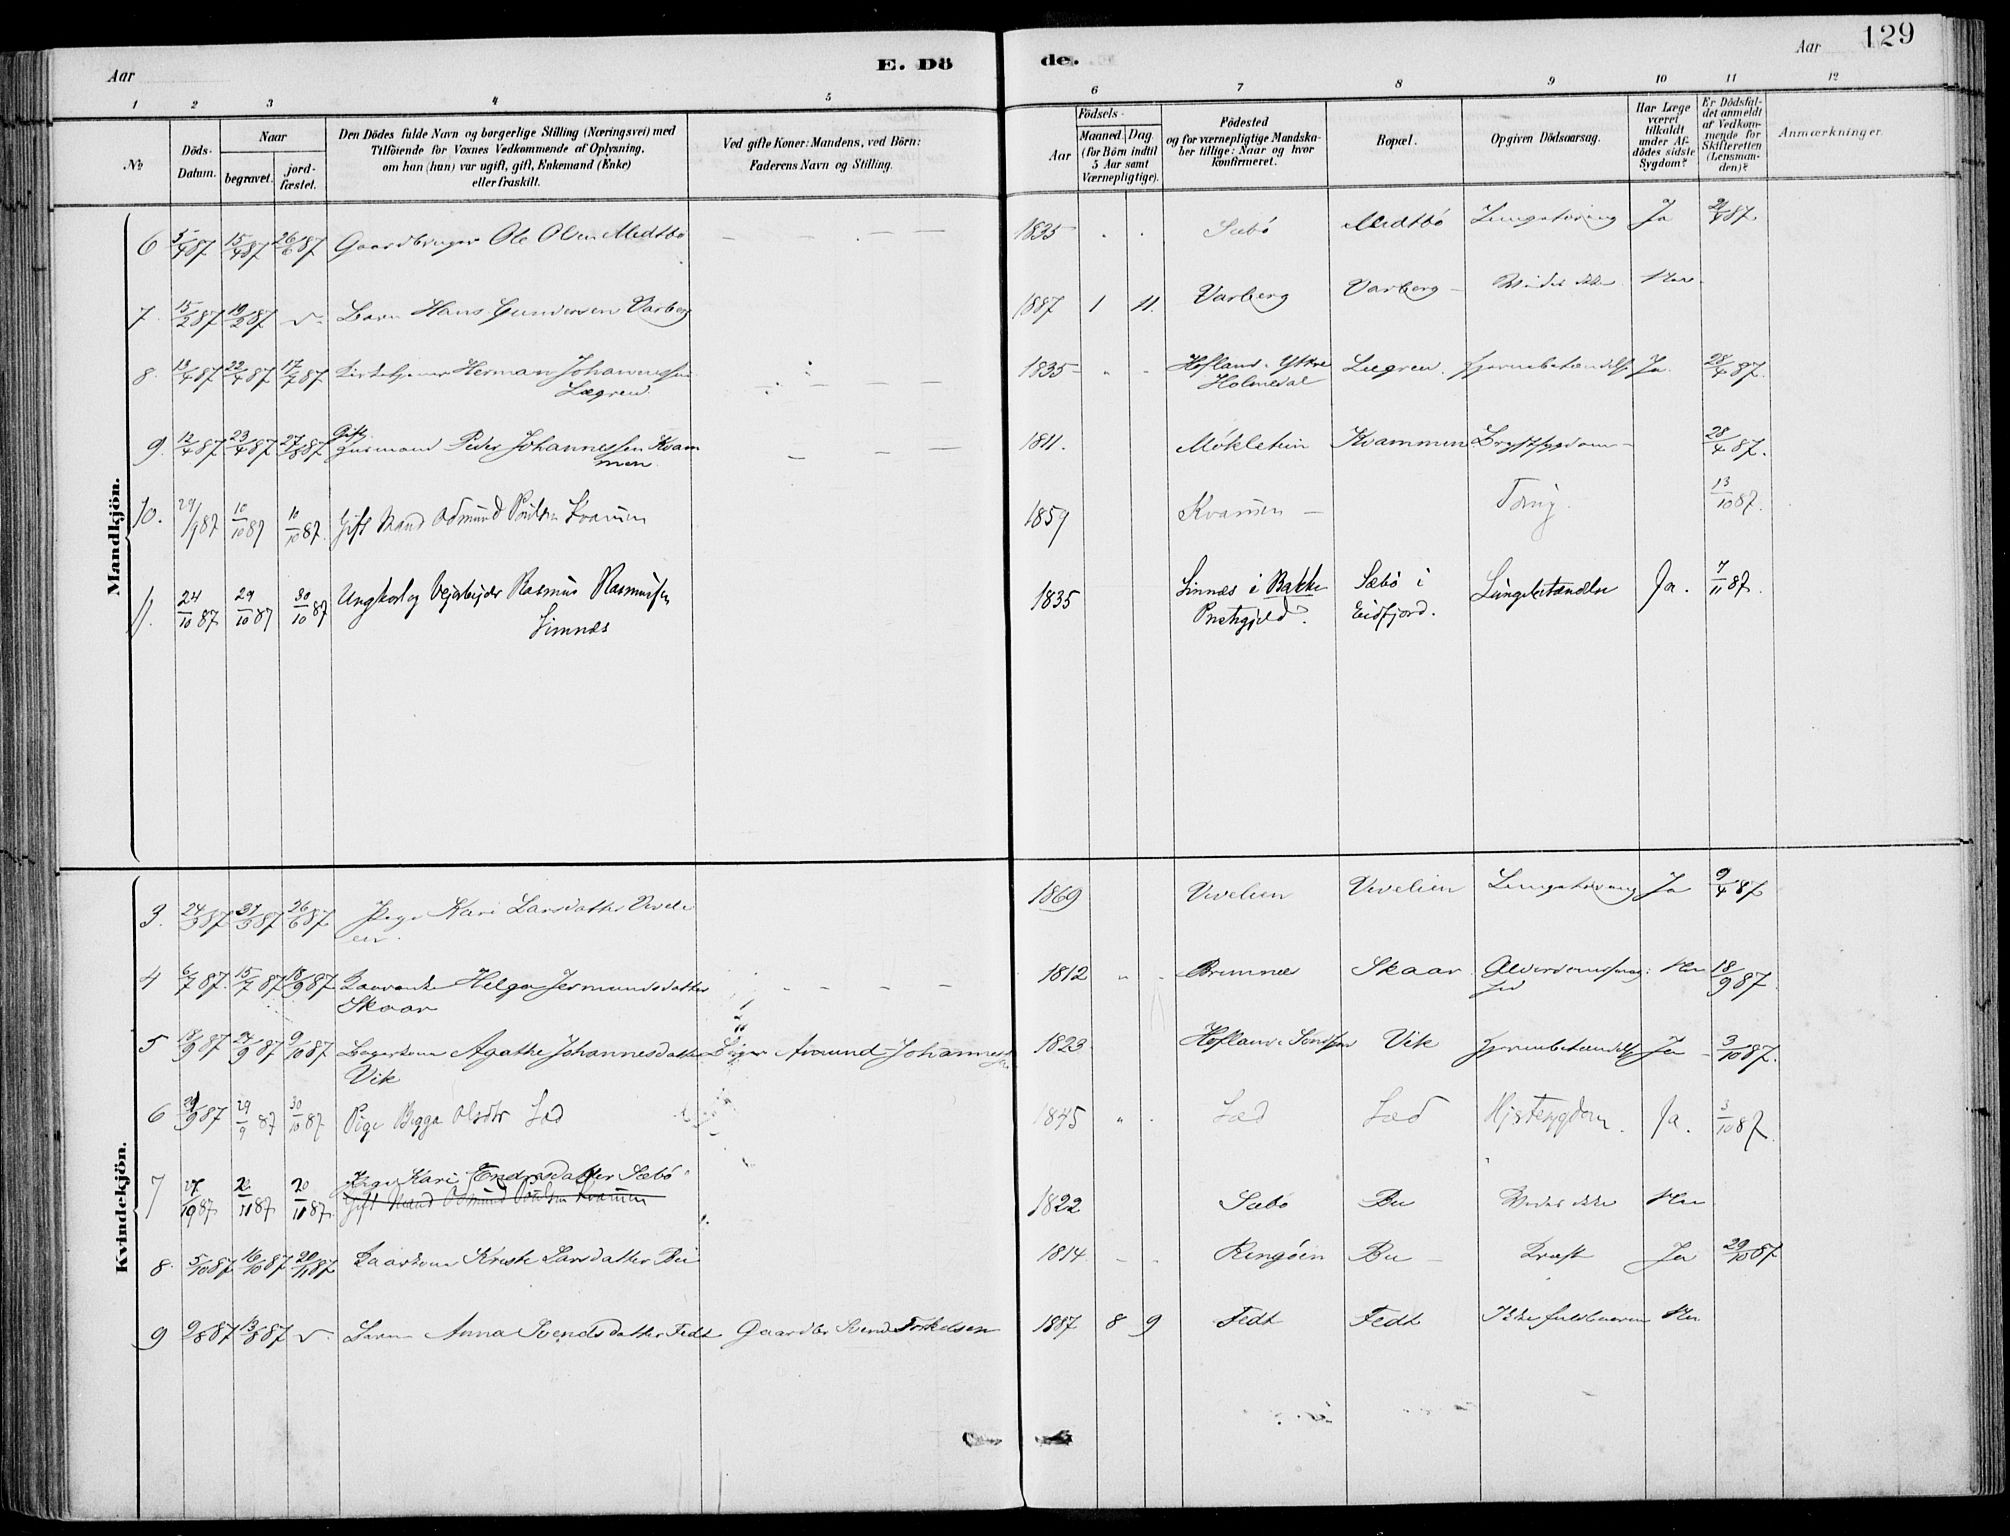 129
Aar
E. Dö
de.
Aar
1 2 3 4 5 6 7 8 9 10 11 12
№
Döds-Datum.
Naar
begravet.
jord-fæstet.
Den Dödes fulde Navn og borgerlige Stilling (Næringsvei) med
Tilföiende for Voxnes Vedkommende af Oplysning,
om hun (han) var ugift, gift, Enkemand (Enke)
eller fraskilt.
Ved gifte Koner: Mandens, ved Börn:
Faderens Navn og Stilling.
Födsels-
Aar
Maaned. Dag.
(for Börn indtil
5 Aar samt
Værnepligtige).
Födested
og for værnepligtige Mandska-
ber tillige: Naar og hvor
konfirmeret.
Bopæl.
Opgiven Dödsaarsag.
Har Læge
været
tilkaldt
under Af-
dödes sidste
Sygdom?
Er Dödsfal-
det anmeldt
af Vedkom-
mende for
Skifteretten
(Lensman-
den)?
Anmærkninger.
Mandkjön.
6 5/4 87 15/4 87 26/6 87 Gaardbruger Ole Olsen Medtbø 1835 Sæbø Medtbø Lungetæring Ja 21/4 87
7. 15/2 87 19/2 87 Barn Hans Gundersen Varberg 1887 1 11. Varberg Varberg Vides ikke Nei
8. 13/4 87 22/4 87 17/7 87 Kirketjener Herman Johannessen 1835 Hofland i Yttre Lægreid Hjernebetændelse Ja. 28/4 87.
Lægreid Holmedal
9. 12/4 87 23/4 87 27/8 87 Gift Huusmand Peder Johannessen Kvam 1811. Møkletun Kvammen Brystsygdom 28/4 87.
men.
10. 29/9 87 10/10 87 10/10 87. Gift Mand Odmund Poulsen Kvamen 1859 Kvamen Tæring. 13/10 87.
11. 24/10 87 29/10 87 30/10 87 Ungkarl og Vejarbejder Rasmus Rasmussen 1835 Sinnes i Bakke Sæbø i Lungebetændelse Ja. 7/11 87.
Sinnes Prestegjeld. Eidfjord.
Kvindekjön.
3. 24/3 87 31/3 87 26/6 87 Pige Kari Larsdatter Veveli 1869 Vivelien Vevelien Lungetæring Ja 9/4 87
en.
4 6/7 87. 15/7 87 18/9 87 Kaarenke Helga Jermundsdatter 1812 Brimnes Skaar Alderdomssvag- Nei 18/9 87
Skaar hed
5 18/9 87 24/9 87 9/10 87 Bøgerkone Agathe Johannesdatter Bøiger Amund Johannes 1823 Hofland i Søndfjor Vik Hjernebetændelse Ja 3/10 87.
Vik
6 21/9 87 29/9 87 30/10 87 Pige Begga Olsdtr Sæd 1845 Sæd Sæd Hjertesygdom. Ja. 3/10 87.
7 27/10 87 2/11 87 20/11 87. Pige Kari Endresdatter Sæbø 1822 Sæbø Bu Vides ikke Nei
Gift Mand Odmund Poulsen Kvamen
8. 5/10 87 16/10 87 20/11 87 Kaarkone Kristi Larsdatter Bu 1814 Ringøen Bu Kræft Ja 29/10 87
9 9/8 87 13/8 87 Barn Anna Svendsdatter Fedt Gaardbr Svend Torkelsen 1887 8 9 Fedt Fedt Ikke fuldbaaren Nei